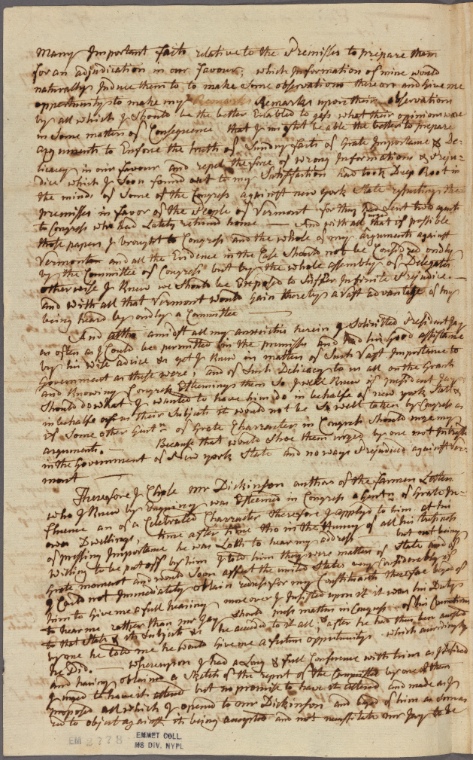 Many Important facts relative to the Premisses to prepare them
for an adjudication in our favour, which Information of mine would
naturally Induce them to, to make some observations thereon and give me
opportunity to make my Remarks upon their observations
by all which I should be the better Enabled to gess what their opinions were
in some matters of Consequence that I might be able the better to prepare
arguments to Enforce the truth of Sundry facts of Grate Importance &
in our favour and repel the force of wrong Informations & Preju-
dice which I soon found not to my Satisfaction had took Deep Root in
the minds of Some of the Congress against new York State respecting the
premisses in favor of the People of Vermont for they had sent two agents
to Congress who had Lately returnd home — And with all that if possible
those papers I brought to Congress and the whole of my arguments against
Vermont and all the Evidence in the Case Should not be Considered ondly
by the Committee of Congress but by the whole assembly of Delegates
otherwise I Knew we should be Exposed to Suffer Infinite Prejudice
and with all that Vermont would Gain thereby a vast advantage of my
being heard by ondly a Committee
And altho amidst all my anxieties herein I Solicited President Jay
as often as I Could be permitted on the premisses and had his good assistance
by his wise advice & yet I Knew in matters of Such Vast Importance to
Government as these were, and of Such Delicacy to us all on the Grants
and Knowing Congress Esteeming them So I well Knew if President Jay
Should do what I wanted to have him do in behalfe of new york State &
in behalfe of their Subjects it would not be So well taken by Congress as
if Some other Gent.n of Grate Charracter in Congress Should use my
arguments. Because that would Shoe them urged by one not Interested
in the Government of New york State and no ways Prejudice against Ver-
mont
Therefore I Chose Mr Dickinson author of the Farmers Letters
who I Knew by Inquiry was Esteemed in Congress a Gent.n of Grate In-
fluence an of a Celebrated Charracter therefore I applyd to him at his
own Dwelling, time after time tho in the Hurry of all his business
of pressing Importance he was Loth to hear my address — but not being
Willing to be put off by him I told him they were matters of State and of
Grate moment and would Soon affect the united States very considerably if
I Could not Immediately obtain redress for my Constituents therefore beged of
him to Give me a full hearing moreover I Insisted upon it it was his duty
to hear me rather than Mr Jay Should press matters in Congress of his
to that State & its Subjects & he acceeded to it all, & after he had thus been
by me he told me he would Give me a future opportunity which accordingly
he Did. — whereupon I had a Long & full Conference with him as
and having obtained a Sketch of the report of the Committee
to have it alterd but no promise to have it alterd and made as I
proposed all which I opend to Mr Dickinson and beged of him as
to object against its being accepted and not Mr Jay to be
EM 2778
EMMET COLL.
MS DIV. NYPL